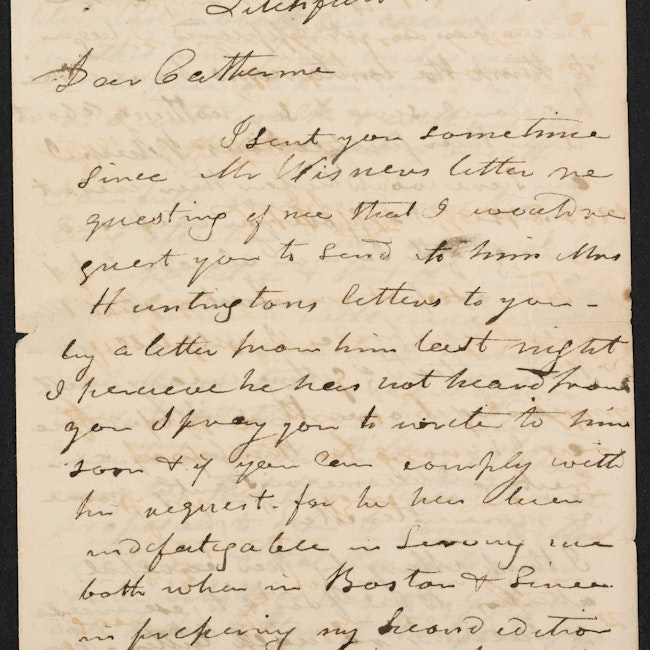 Litchfield
Dear Catherine
I sent you sometime
since Mr Wisners letter re
questing of me that I would re
quest you to send to him Mrs
Huntingtons letters to you -
by a letter from him last night
I perceive he has not heard from
you I pray you to write to him
soon & if you can comply with
his request. for he has been
indefatigable in serving me
both when in Boston & since
in preparing my second edition